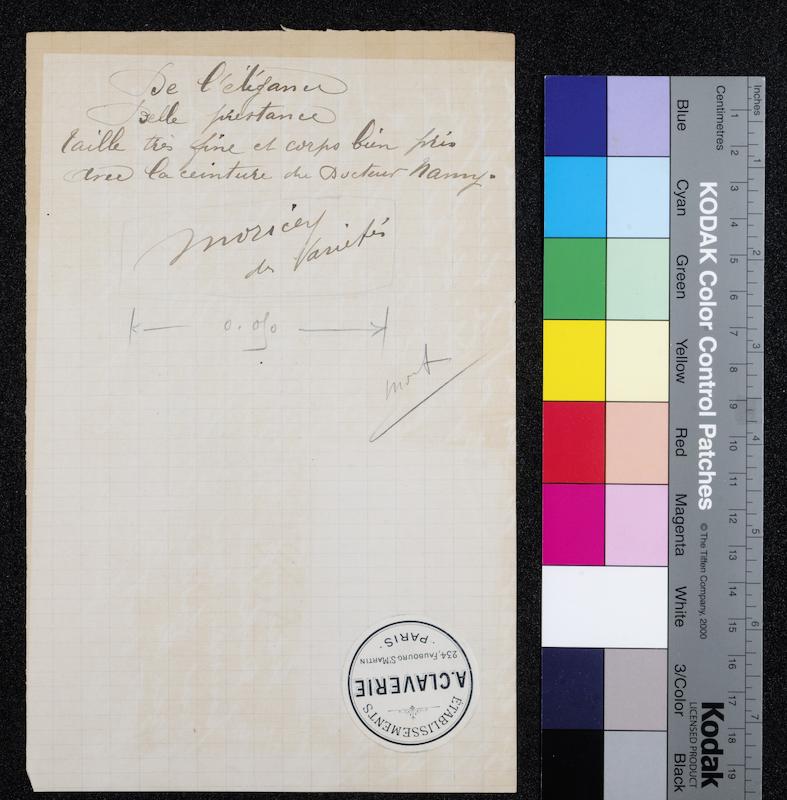 De l'élégance
Belle prestance
Taille très fine et corps bien pris
avec la ceinture du Docteur Namy.
Moricey
des Variétés
mort
ÉTABLISSEMENTS
A. CLAVERIE
234, FAUBOURG ST MARTIN
· PARIS ·
Inches
Centimetres
1 2 3 4 5 6 7 8 9 10 11 12 13 14 15 16 17 18 19
1 2 3 4 5 6 7
KODAK Color Control Patches
© The Tiffen Company, 2000
Kodak
LICENSED PRODUCT
Blue
Cyan
Green
Yellow
Red
Magenta
White
3/Color
Black